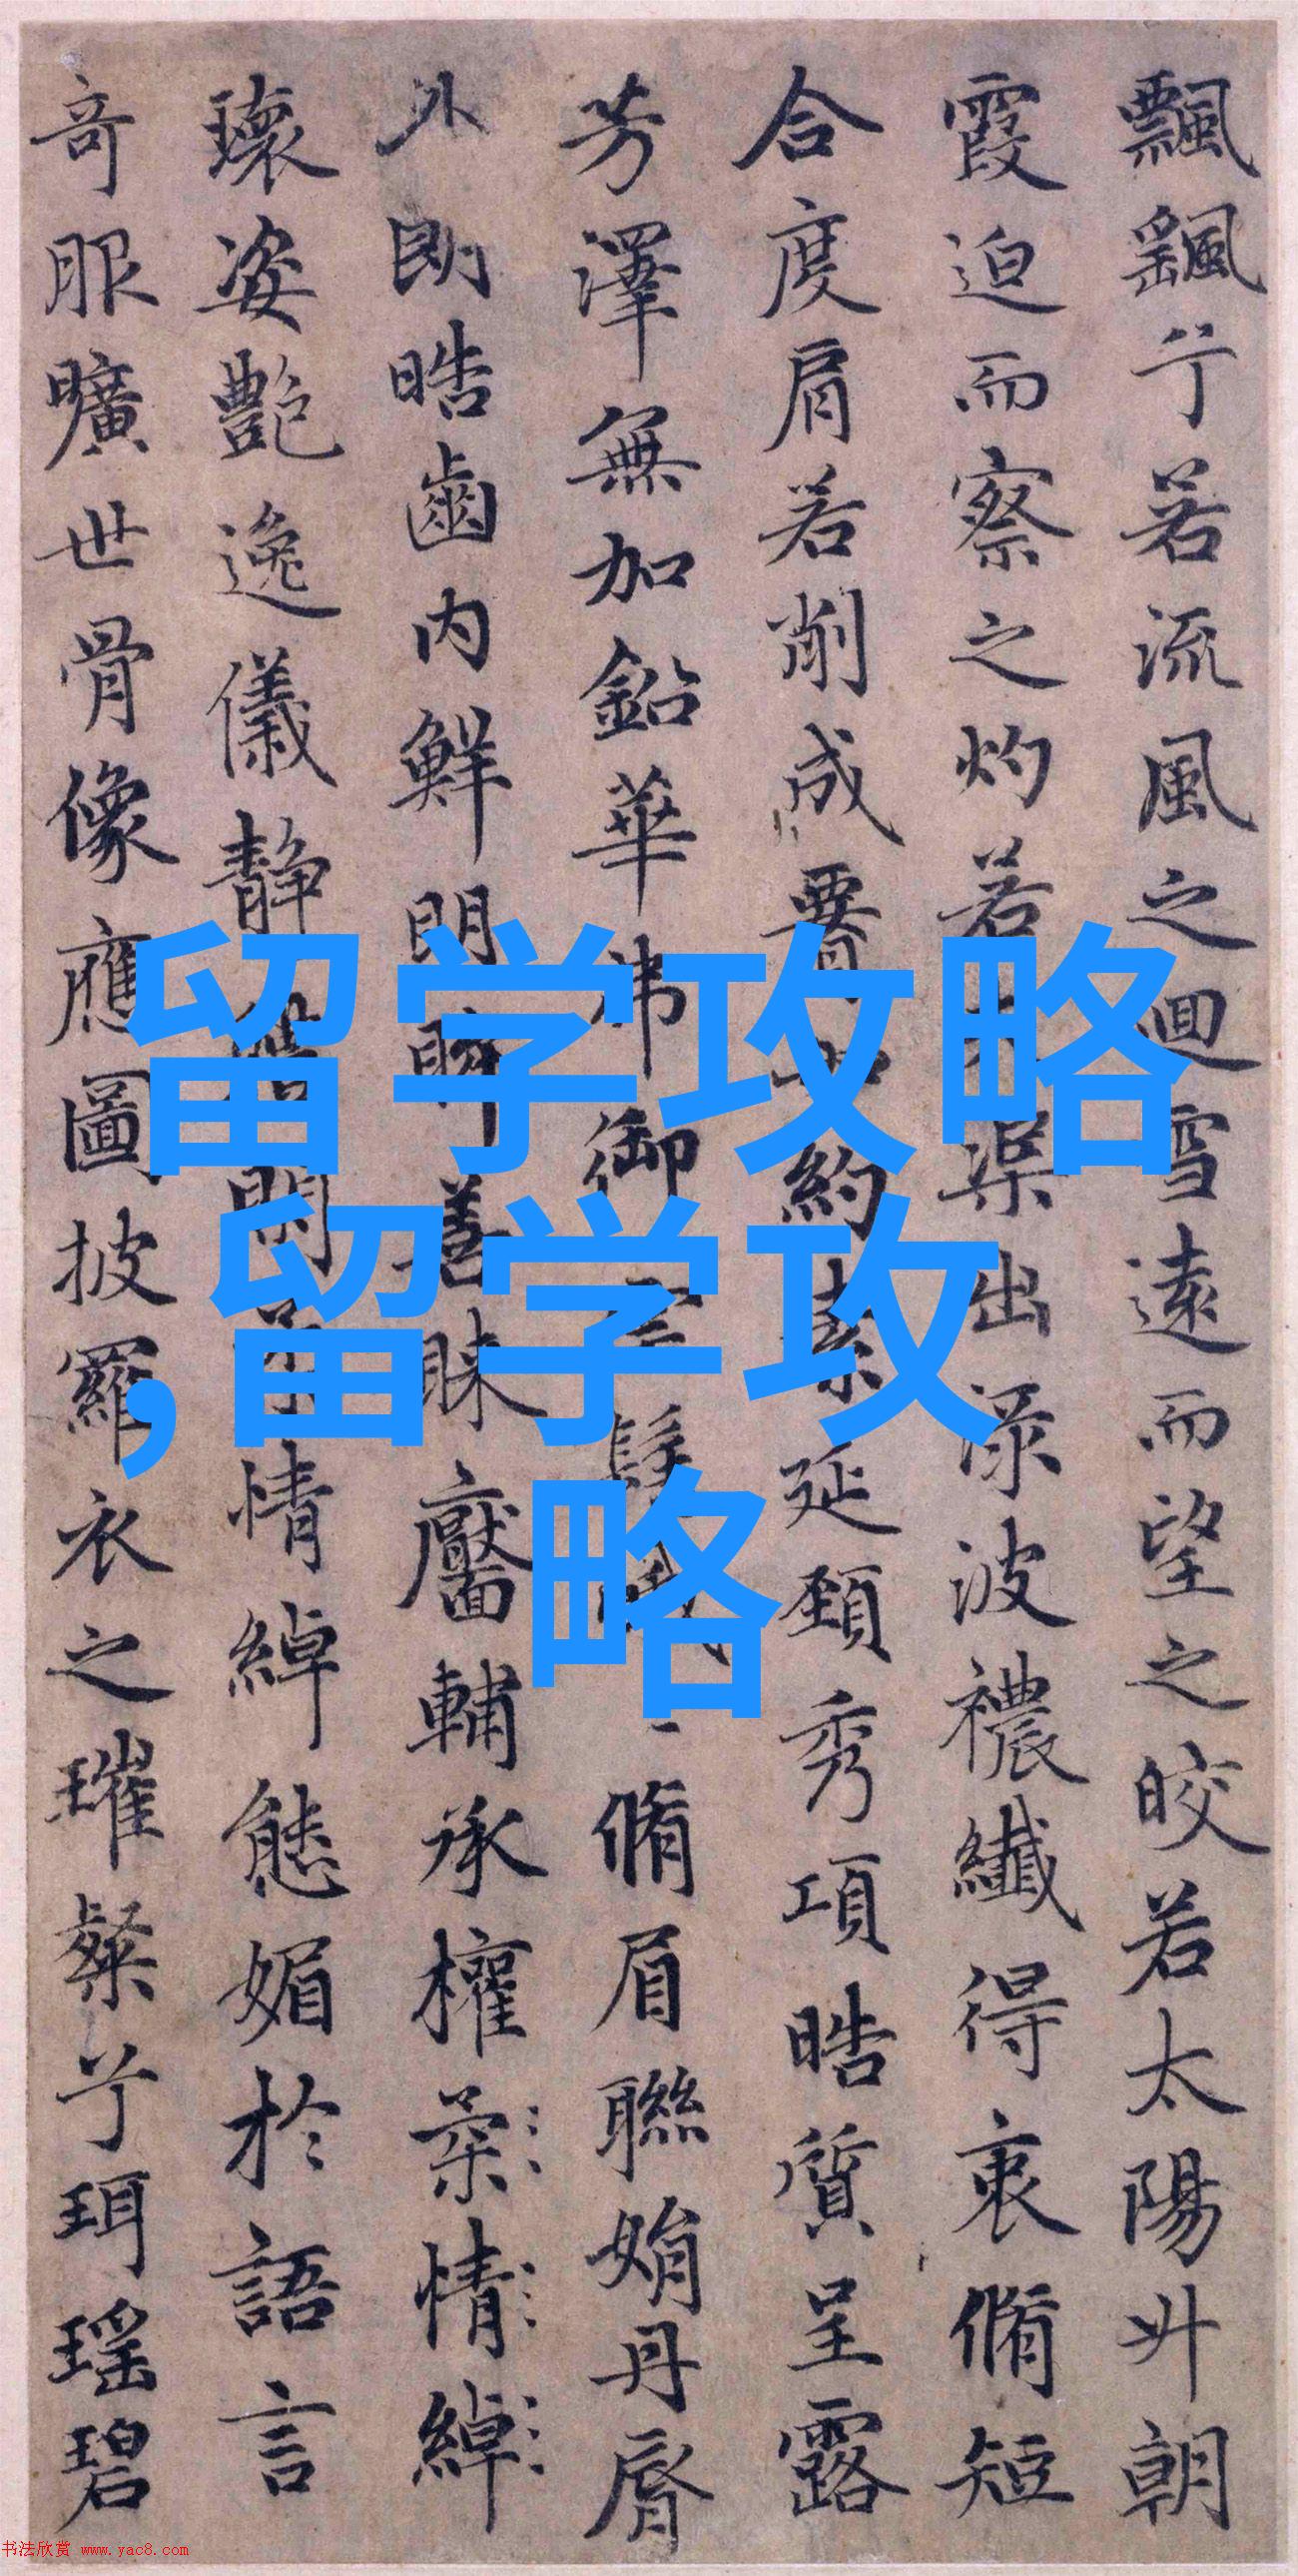 飄颻兮若流風之迴雪遠而望之皎若太陽升朝
霞迫而察之灼若渠出渌波襛纖得衷脩短
合度肩若削成約素延頸秀項皓質呈露
芳澤無加鉛華弗御脩眉聯娟丹脣
外朗皓齒内鮮明眸善睞靨輔承權柔情綽
瓌姿艷逸儀靜閑情綽態媚於語言
奇服曠世骨像應圖披羅衣之璀粲兮珥瑶碧
留学攻略
,留学攻
略
书法欣赏 www.yac8.com